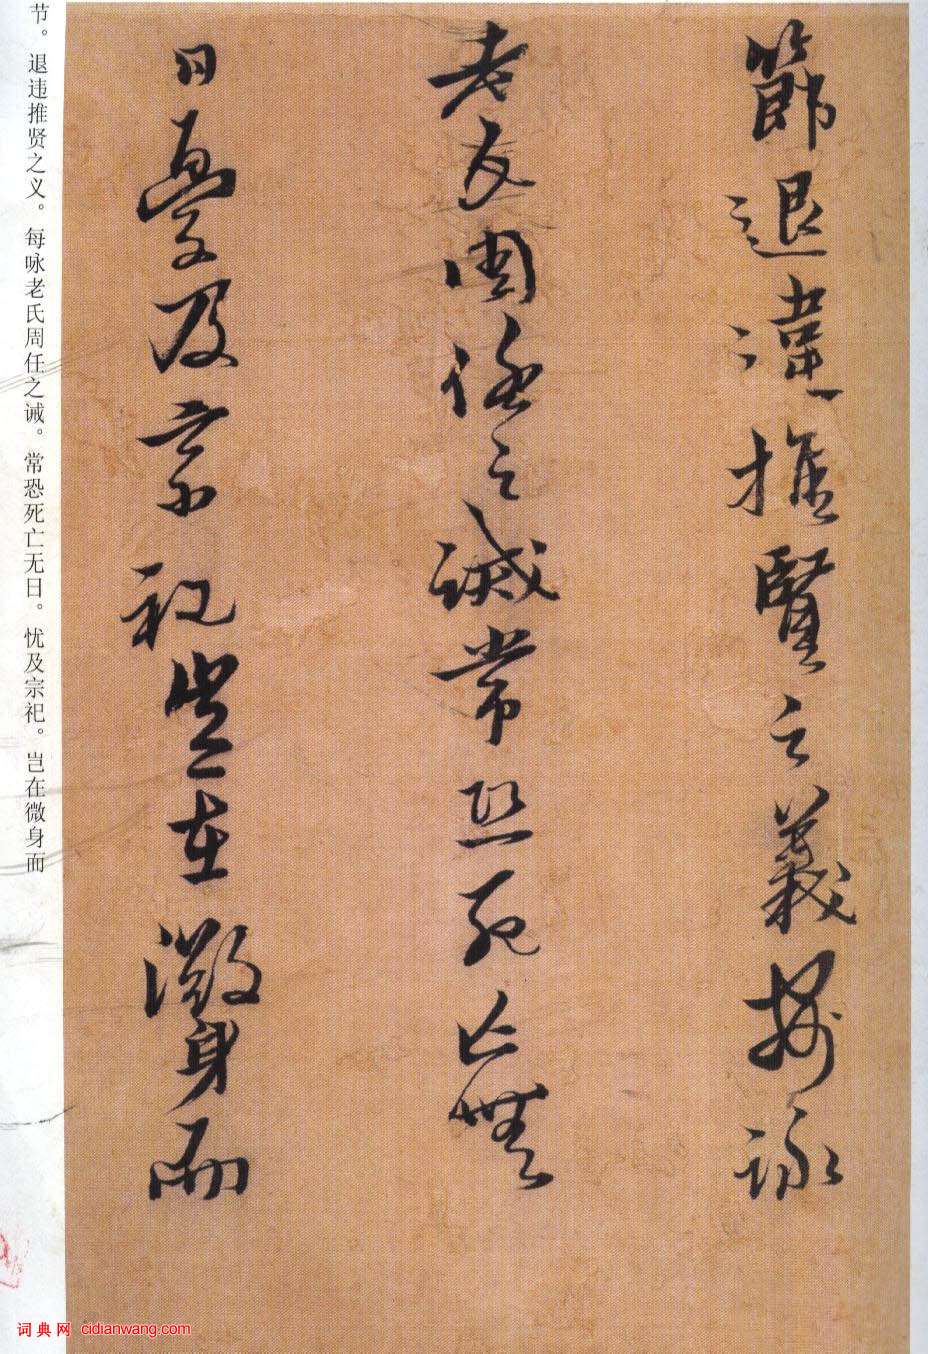 節退違推賢之義每詠
老氏周任之誡常恐死亡無
日憂及宗祀豈在微身而
节。退违推贤之义。每咏老氏周任之诫。常恐死亡无日。忧及宗祀。岂在微身而
词典网 cidianwang.com